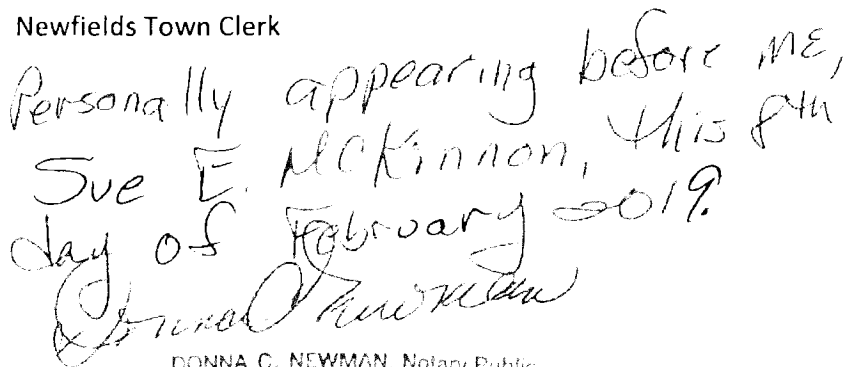 Newfields Town Clerk
Personally appearing before me,
Sue E. McKinnon, this 8th
day of February 2019.
Donna C Newman
DONNA C. NEWMAN, Notary Public